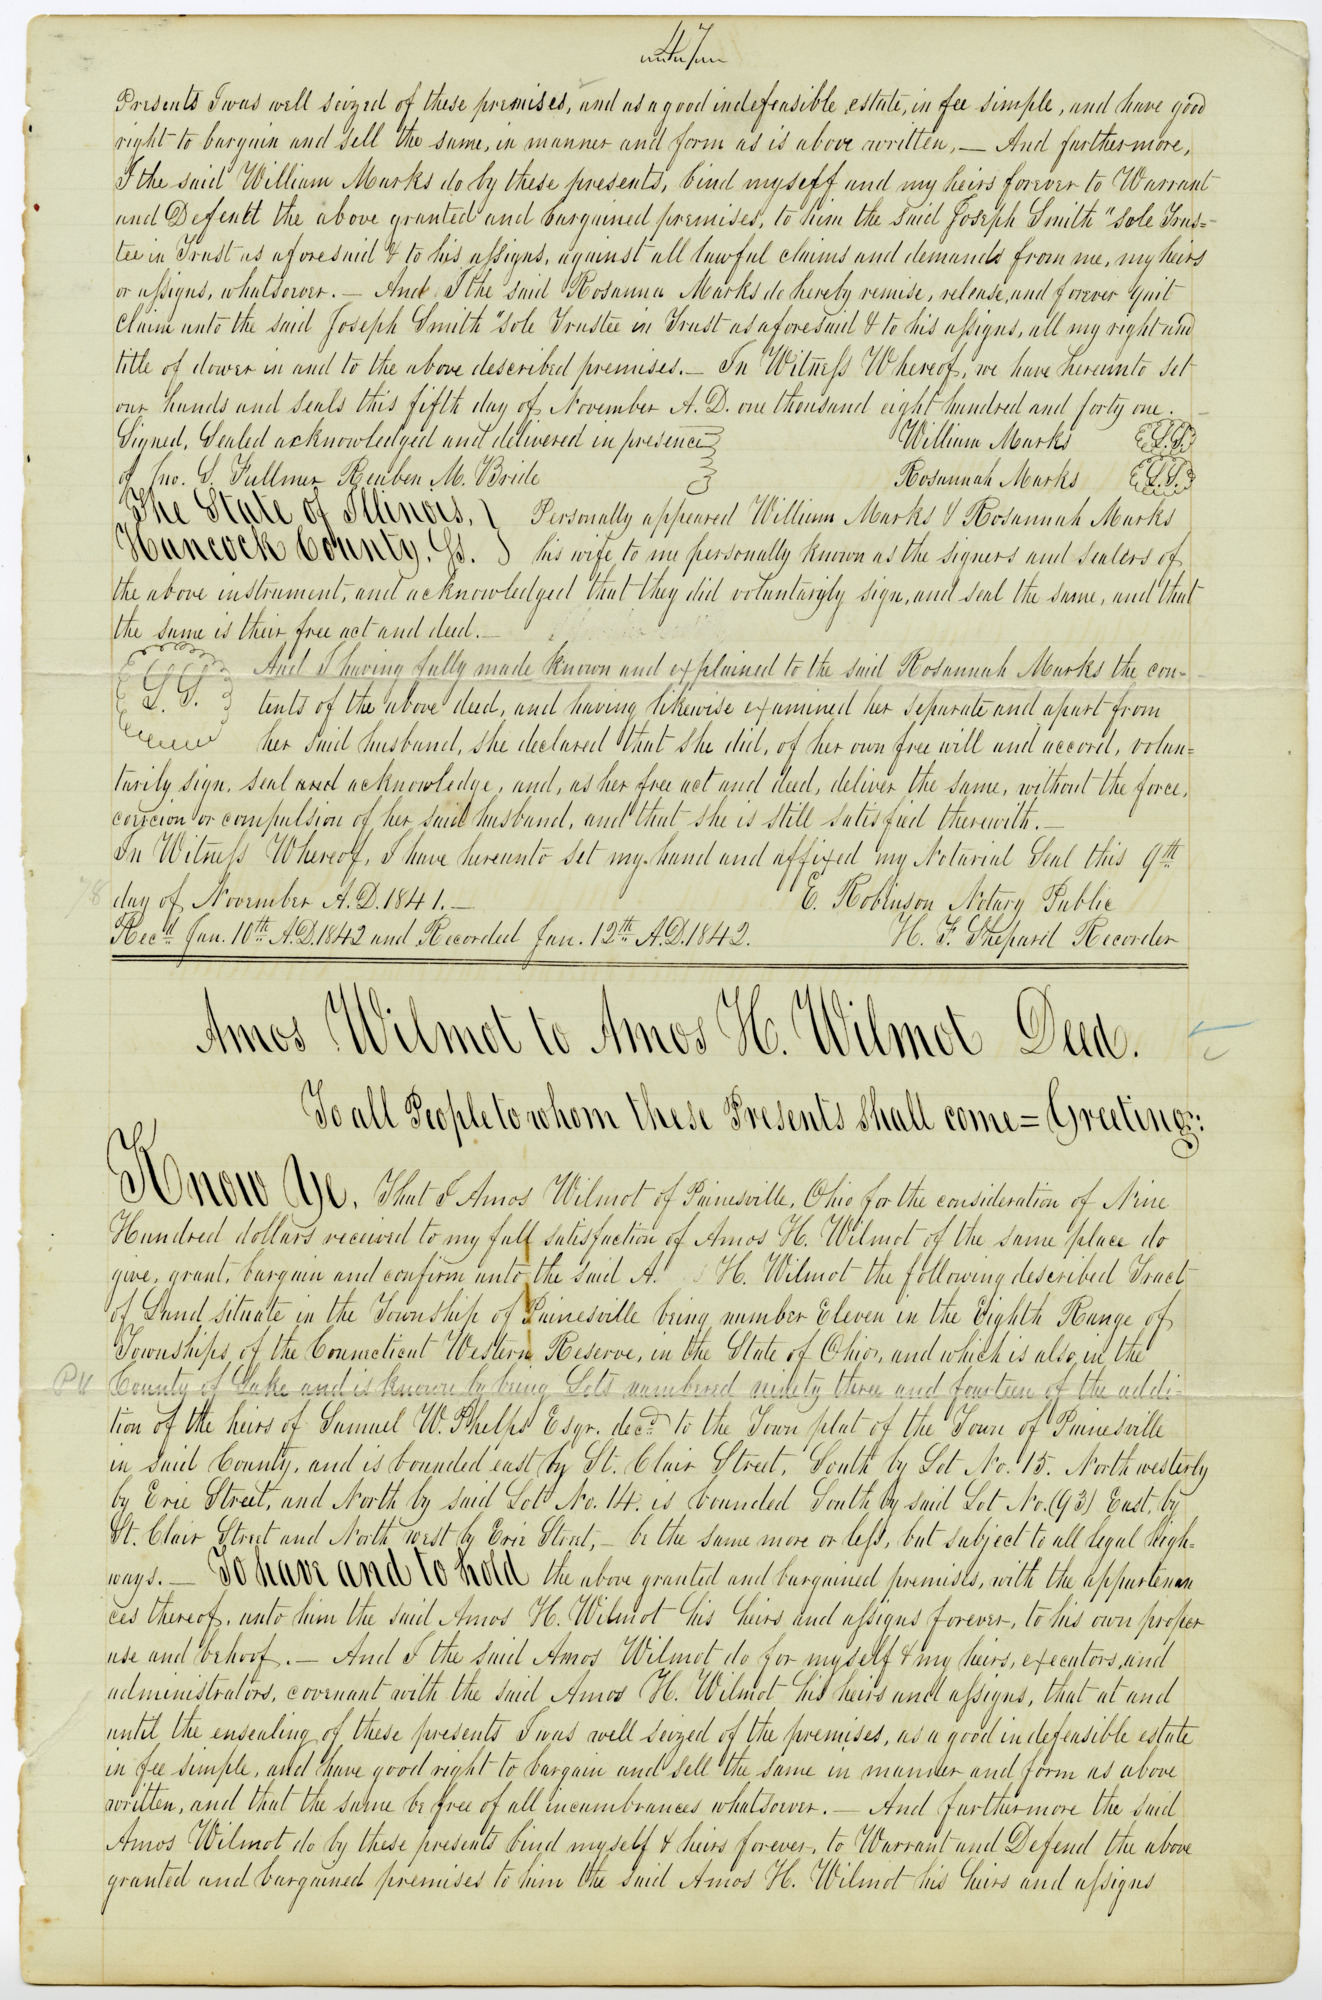 47
Presents I was well seized of these premises, and as a good indefeasible estate, in fee simple, and have good
right to bargain and sell the same, in manner and form as is above written, — And furthermore,
I the said William Marks do by these presents, bind myself and my heirs forever to Warrant
and Defend the above granted and bargained premises, to him the said Joseph Smith "sole Trus=
tee in Trust as aforesaid & to his assigns, against all lawful claims and demands from me, my heirs
or assigns, whatsoever. — And I the said Rosanna Marks do hereby remise, release, and forever quit
claim unto the said Joseph Smith "sole Trustee in Trust as aforesaid & to his assigns, all my right and
title of dower in and to the above described premises. — In Witness Whereof, we have hereunto set
our hands and seals this fifth day of November A. D. one thousand eight hundred and forty one.
Signed, Sealed acknowledged and delivered in presence William Marks L.S.
of Jno. S. Fullmer Reuben M. Bride Rosannah Marks L.S.
The State of Illinois, } Personally appeared William Marks & Rosannah Marks
Hancock County. Ss. } his wife to me personally known as the signers and sealers of
the above instrument, and acknowledged that they did voluntarily sign, and seal the same, and that
the same is their free act and deed. —
And I having fully made known and explained to the said Rosannah Marks the con-
L. S. tents of the above deed, and having likewise examined her separate and apart from
her said husband, she declared that she did, of her own free will and accord, volun=
tarily sign, seal and acknowledge, and, as her free act and deed, deliver the same, without the force,
coercion or compulsion of her said husband, and that she is still satisfied therewith. —
In Witness Whereof, I have hereunto set my hand and affixed my Notarial Seal this 9th
78 day of November A.D. 1841. — E. Robinson Notary Public
Recd Jan. 10th A.D. 1842 and Recorded Jan. 12th A.D. 1842. H. F. Shepard Recorder
Amos Wilmot to Amos H. Wilmot Deed.
To all People to whom these Presents shall come = Greeting:
Know Ye, That I Amos Wilmot of Painesville, Ohio for the consideration of Nine
Hundred dollars received to my full satisfaction of Amos H. Wilmot of the same place do
give, grant, bargain and confirm unto the said A. H. Wilmot the following described Tract
of Land situate in the Township of Painesville being number Eleven in the Eighth Range of
Townships of the Connecticut Western Reserve, in the State of Ohio, and which is also, in the
County of Lake and is known by being Lots numbered ninety three and fourteen of the addi-
tion of the heirs of Samuel W. Phelps Esqr. decd to the Town plat of the Town of Painesville
in said County, and is bounded east by St. Clair Street, South by Lot No. 15. North westerly
by Erie Street, and North by said Lot No. 14. is bounded South by said Lot No. (93) East, by
St. Clair Street and North west by Erie Street, — be the same more or less, but subject to all legal high=
ways. — To have and to hold the above granted and bargained premises, with the appurtenan
ces thereof, unto him the said Amos H. Wilmot his heirs and assigns forever, to his own proper
use and behoof. — And I the said Amos Wilmot do for myself & my heirs, executors, and
administrators, covenant with the said Amos H. Wilmot his heirs and assigns, that at and
until the ensealing of these presents I was well seized of the premises, as a good indefeasible estate
in fee simple, and have good right to bargain and sell the same in manner and form as above
written, and that the same be free of all incumbrances whatsoever. — And furthermore the said
Amos Wilmot do by these presents bind myself & heirs forever, to Warrant and Defend the above
granted and bargained premises to him the said Amos H. Wilmot his heirs and assigns